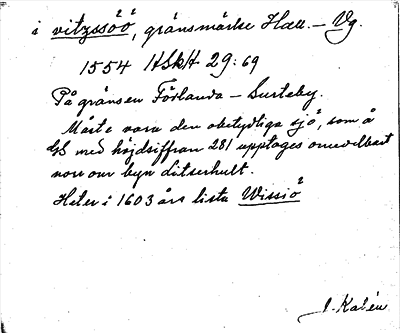 i vitzssöö, gränsmärke Hall. – Vg.
1554 HSkH 29:69
På gränsen Förlanda – Surteby.
Måste vara den obetydliga sjö, som å
GS med höjdsiffran 281 upptages omedelbart
norr om byn
Heter i 1603 års lista Wissiö
J. Kalén